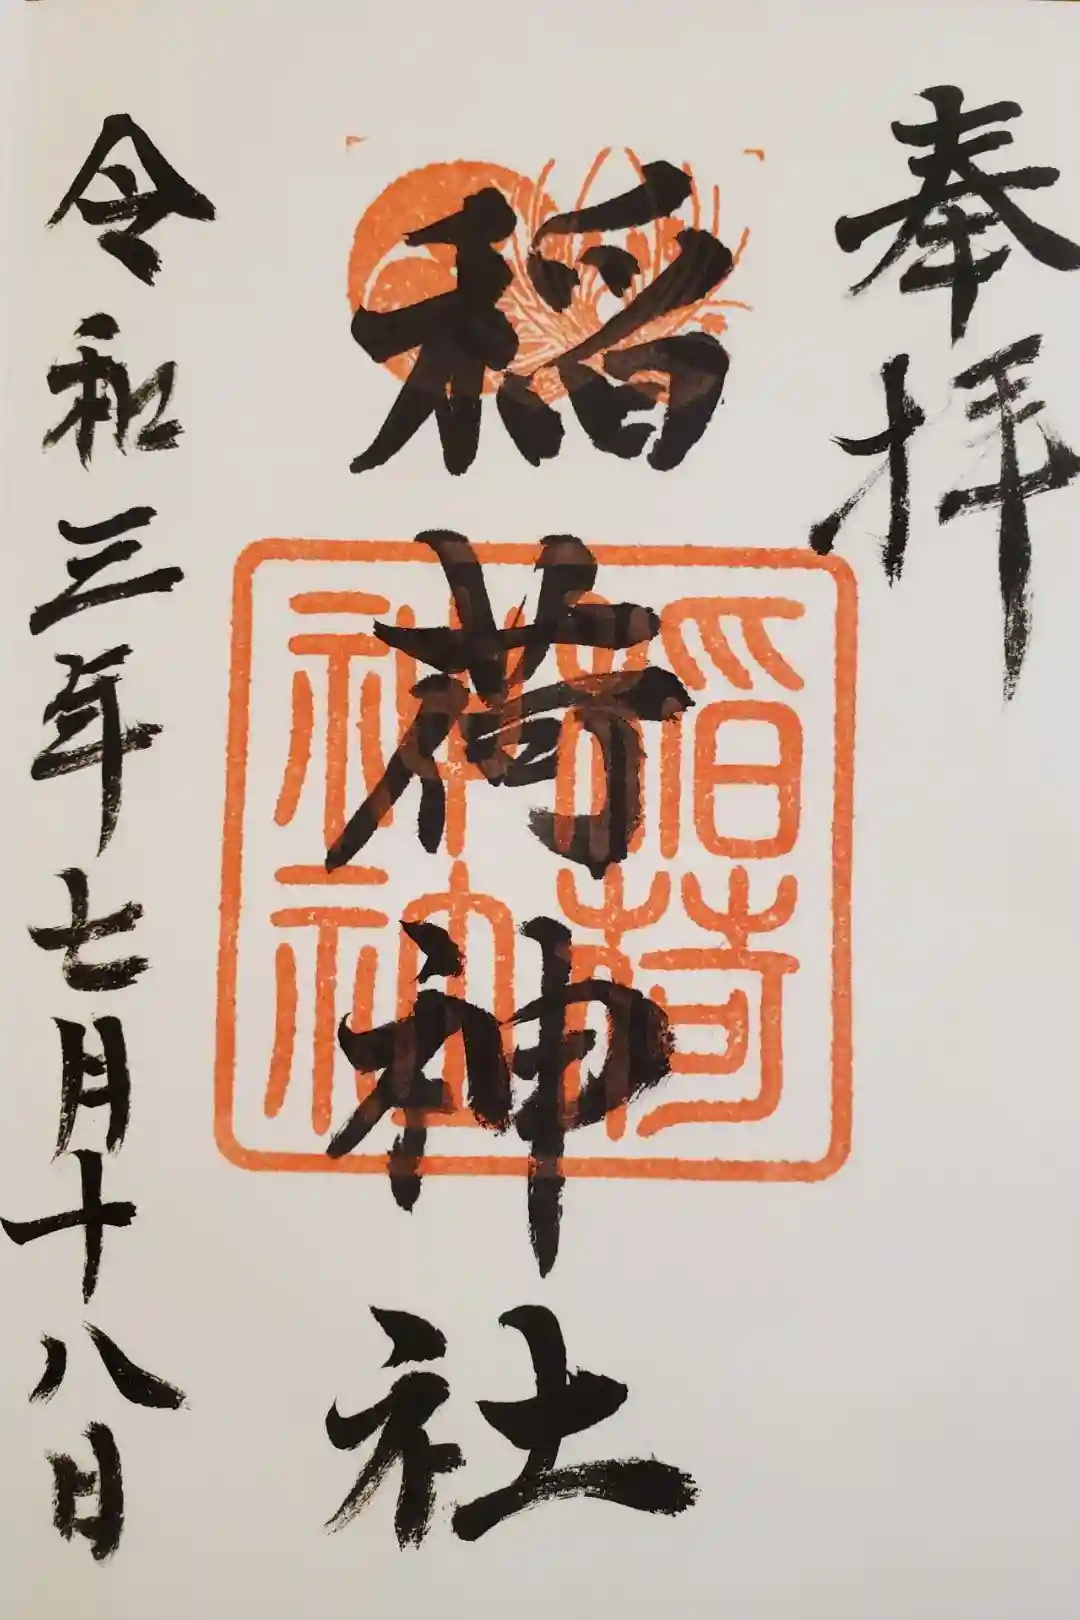 奉拝
稲荷神社
稲荷
神社
令和三年七月十八日